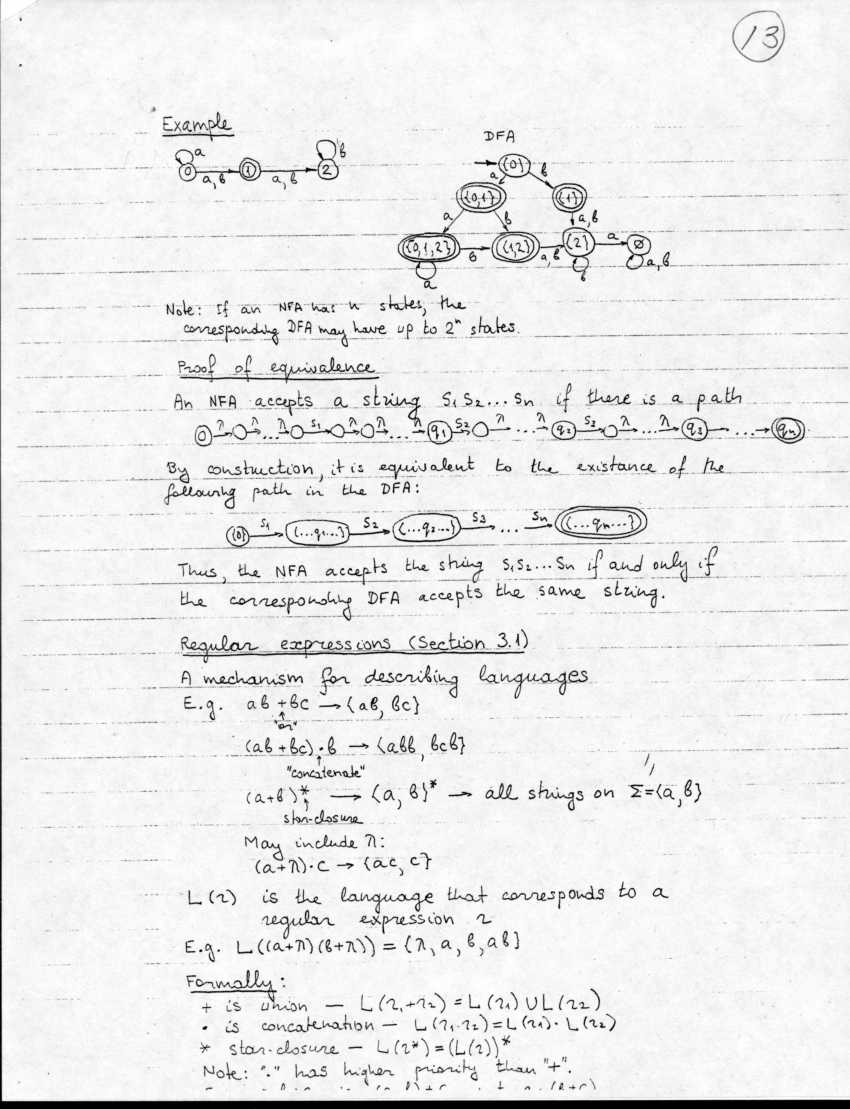 13
Example
DFA
a b
0 a,b 1 a,b 2
{0}
a b
{0,1} {1}
a b a,b
{0,1,2} b {1,2} a,b {2} a ∅
a b a,b
Note: If an NFA has n states, the
corresponding DFA may have up to 2ⁿ states.
Proof of equivalence
An NFA accepts a string S₁S₂...Sn if there is a path
0 λ λ ... λ S₁ λ λ ... λ q₁ S₂ λ ... λ q₂ S₃ λ ... λ q₃ ... qn
By construction, it is equivalent to the existance of the
following path in the DFA:
{0} S₁ {...q₁...} S₂ {...q₂...} S₃ ... Sn {...qn...}
Thus, the NFA accepts the string S₁S₂...Sn if and only if
the corresponding DFA accepts the same string.
Regular expressions (Section 3.1)
A mechanism for describing languages
E.g. ab + bc → {ab, bc}
"or"
(ab + bc)·b → {abb, bcb}
"concatenate"
(a+b)* → {a, b}* → all strings on Σ={a,b}
star-closure
May include λ:
(a+λ)·c → {ac, c}
L(r) is the language that corresponds to a
regular expression r
E.g. L((a+λ)(b+λ)) = {λ, a, b, ab}
Formally:
+ is union — L(r₁+r₂) = L(r₁) ∪ L(r₂)
· is concatenation — L(r₁·r₂) = L(r₁)· L(r₂)
* star-closure — L(r*) = (L(r))*
Note: "·" has higher priority than "+".